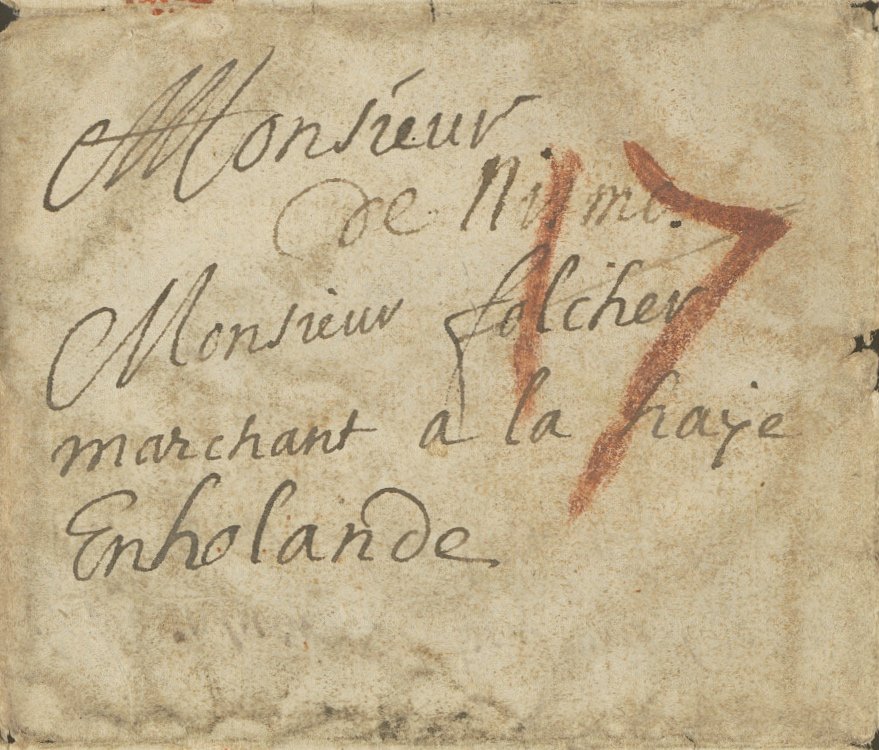 Monsieur
de
17
Monsieur folcher
marchant a la haye
Enholande